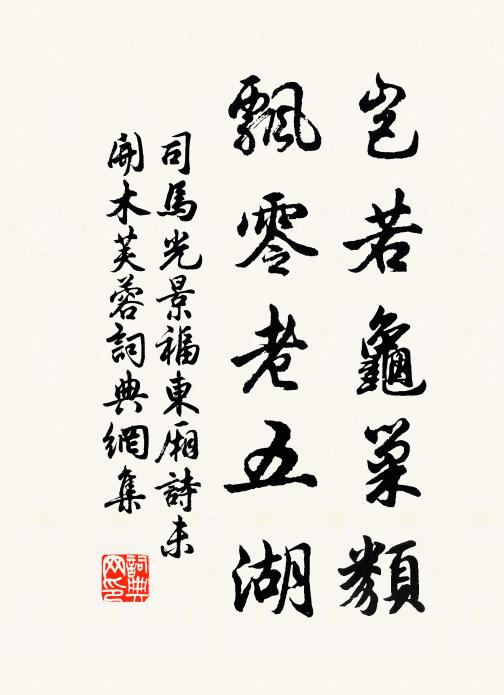 豈若龜巢類
飄零老五湖
司馬光景福東廂詩未
開木芙蓉詞典網集
詞典
网印